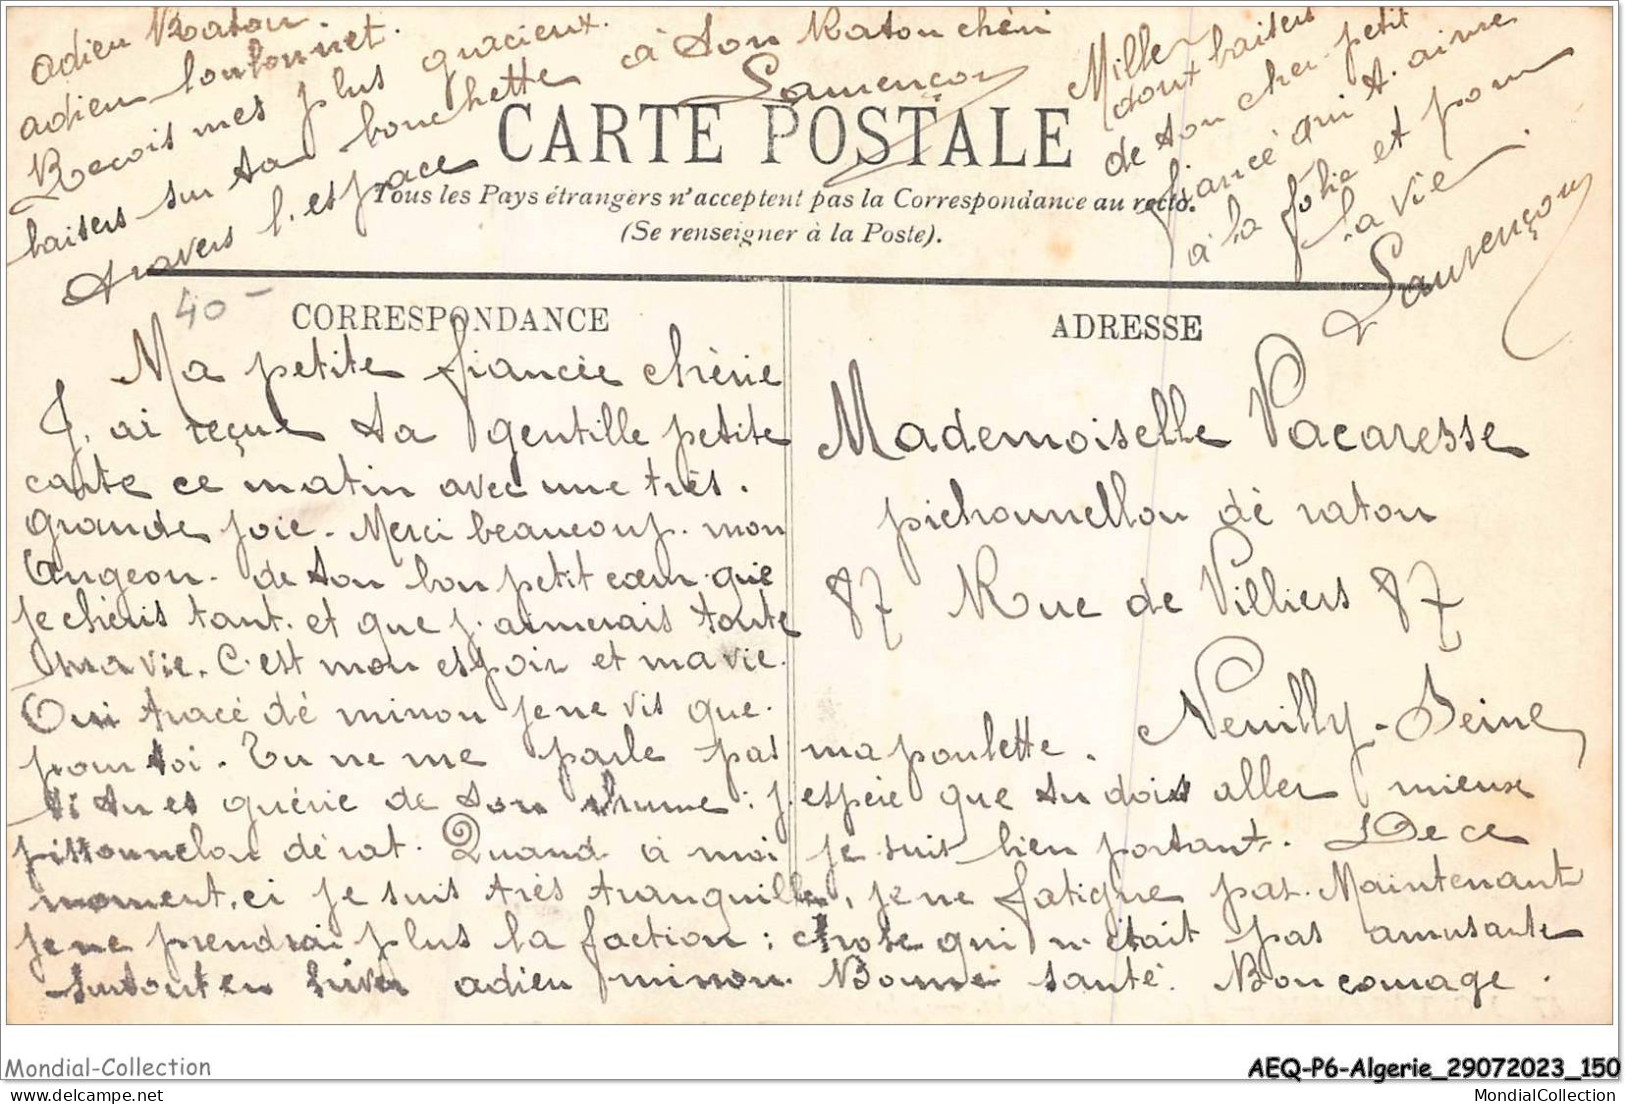 adieu Raton.
adieu loulounet.
Reçois mes plus gracieux.
baisers sur ta bouchette à ton Raton chéri
travers l'espace
Laurençon
Mille
dout baisers
de ton cher petit
fiancé qui t. aime
à la folie et pour
la vie
Laurençon
CARTE POSTALE
Tous les Pays étrangers n'acceptent pas la Correspondance au recto.
(Se renseigner à la Poste).
40-
CORRESPONDANCE
ADRESSE
Ma petite fiancée chérie
J. ai reçue ta gentille petite
carte ce matin avec une très.
grande joie. Merci beaucoup. mon
Angeon. de ton bon petit cœur que
je chéris tant. et que j. aimerais toute
ma vie. C'est mon espoir et ma vie.
Oui tracé dé minou je ne vis que.
pour toi. Tu ne me parle pas
si tu es guérie de ton rhume : j. espére que tu dois aller mieux
pittounelou dé rat. Quand à moi je suis bien portant. De ce
moment. ci je suis très tranquille, je ne fatigue pas. Maintenant
je ne prendrai plus la faction : chose qui n'était pas amusante
surtout en hiver adieu minou. Bonne santé. Bon courage.
Mademoiselle Vacaresse
pichounellou dé raton
87 Rue de Villiers 87
Neuilly-Seine
ma poulette.
Mondial-Collection
AEQ-P6-Algerie_29072023_150
MondialCollection